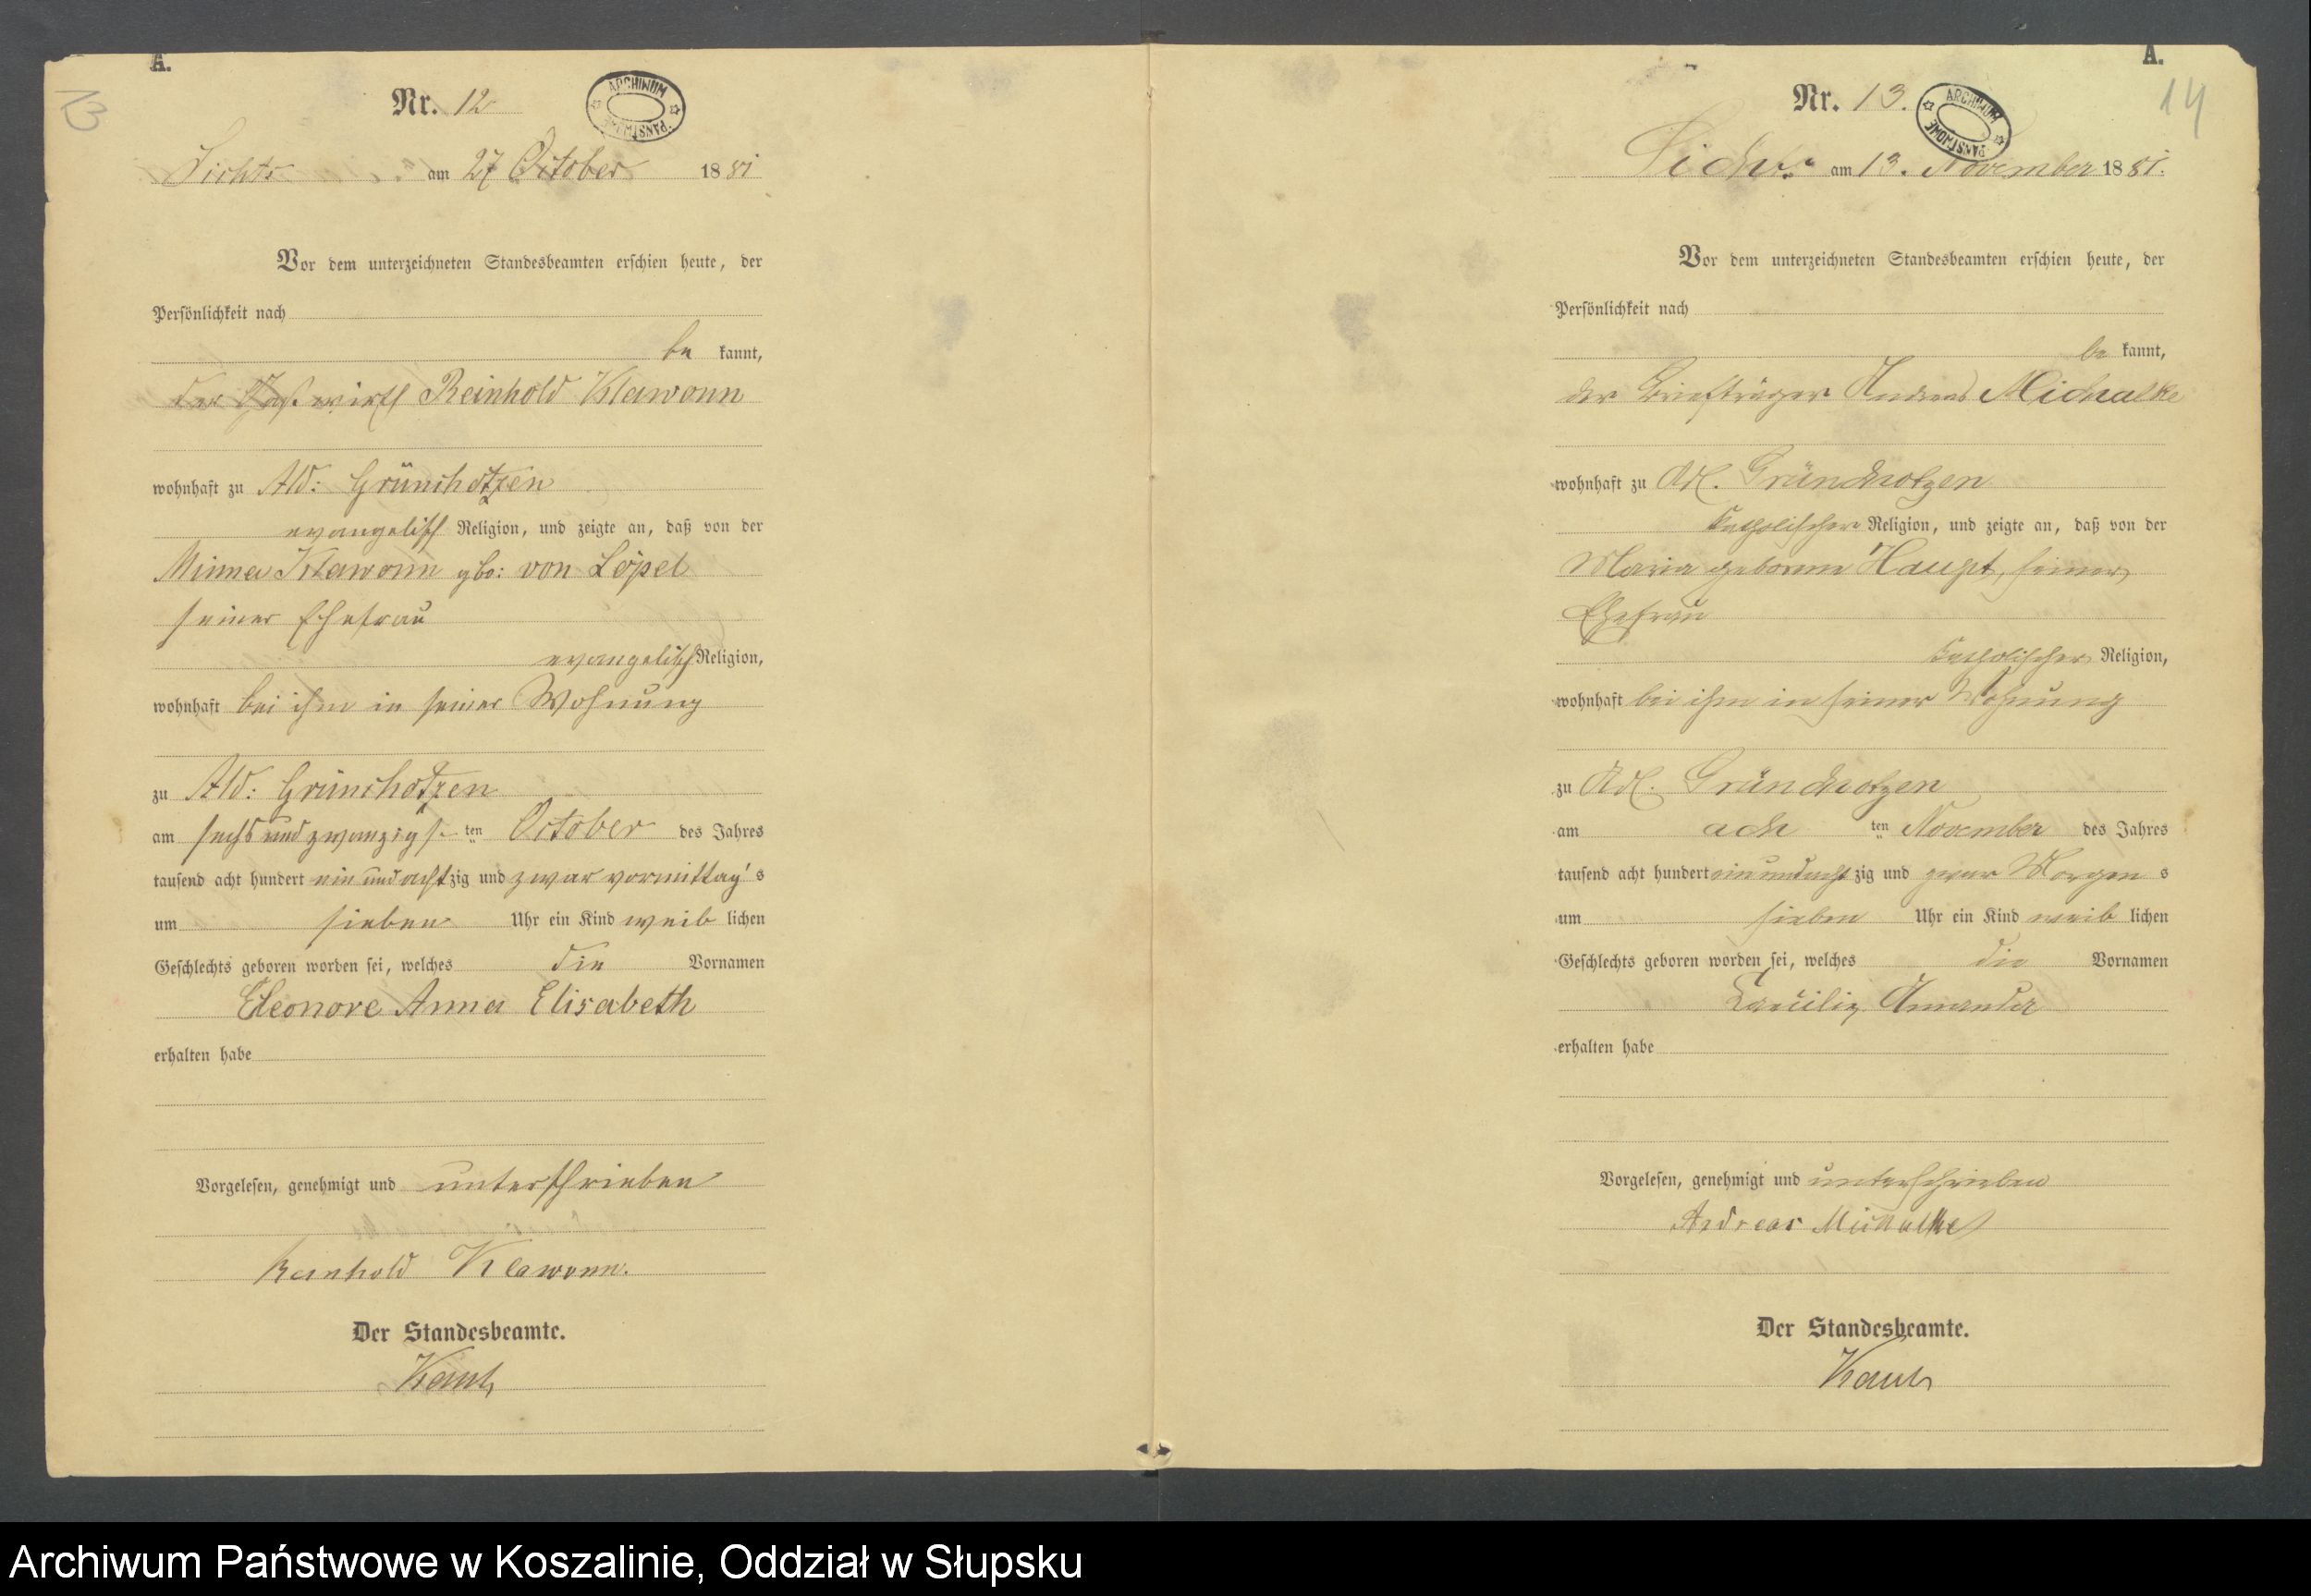 A.
13
Nr. 12
ARCHIWUM PAŃSTWOWE
am 27 October 1881
Vor dem unterzeichneten Standesbeamten erschien heute, der
Persönlichkeit nach
be kannt,
der Gastwirth Reinhold Klawonn
wohnhaft zu Adl: Grünchotzen
evangelisch Religion, und zeigte an, daß von der
Minna Klawonn geb: von Löpel
seiner Ehefrau
evangelisch Religion,
wohnhaft bei ihm in seiner Wohnung
zu Adl: Grünchotzen
am sechs und zwanzigs ten October des Jahres
tausend acht hundert ein und acht zig und zwar vormittag's
um sieben Uhr ein Kind weib lichen
Geschlechts geboren worden sei, welches die Vornamen
Eleonore Anna Elisabeth
erhalten habe
Vorgelesen, genehmigt und unterschrieben
Reinhold Klawonn.
Der Standesbeamte.
A.
14
Nr. 13.
ARCHIWUM PAŃSTWOWE
am 13. November 1881.
Vor dem unterzeichneten Standesbeamten erschien heute, der
Persönlichkeit nach
be kannt,
der Briefträger Andreas Michalke
wohnhaft zu Adl. Gründchotzen
katholischer Religion, und zeigte an, daß von der
Maria geborene Haupt, seiner
Ehefrau
katholischer Religion,
wohnhaft bei ihm in seiner Wohnung
zu Adl. Gründchotzen
am ach ten November des Jahres
tausend acht hundert ein und acht zig und zwar Morgen s
um sieben Uhr ein Kind weib lichen
Geschlechts geboren worden sei, welches die Vornamen
Amanda
erhalten habe
Vorgelesen, genehmigt und unterschrieben
Andreas Michalke
Der Standesbeamte.
Archiwum Państwowe w Koszalinie, Oddział w Słupsku